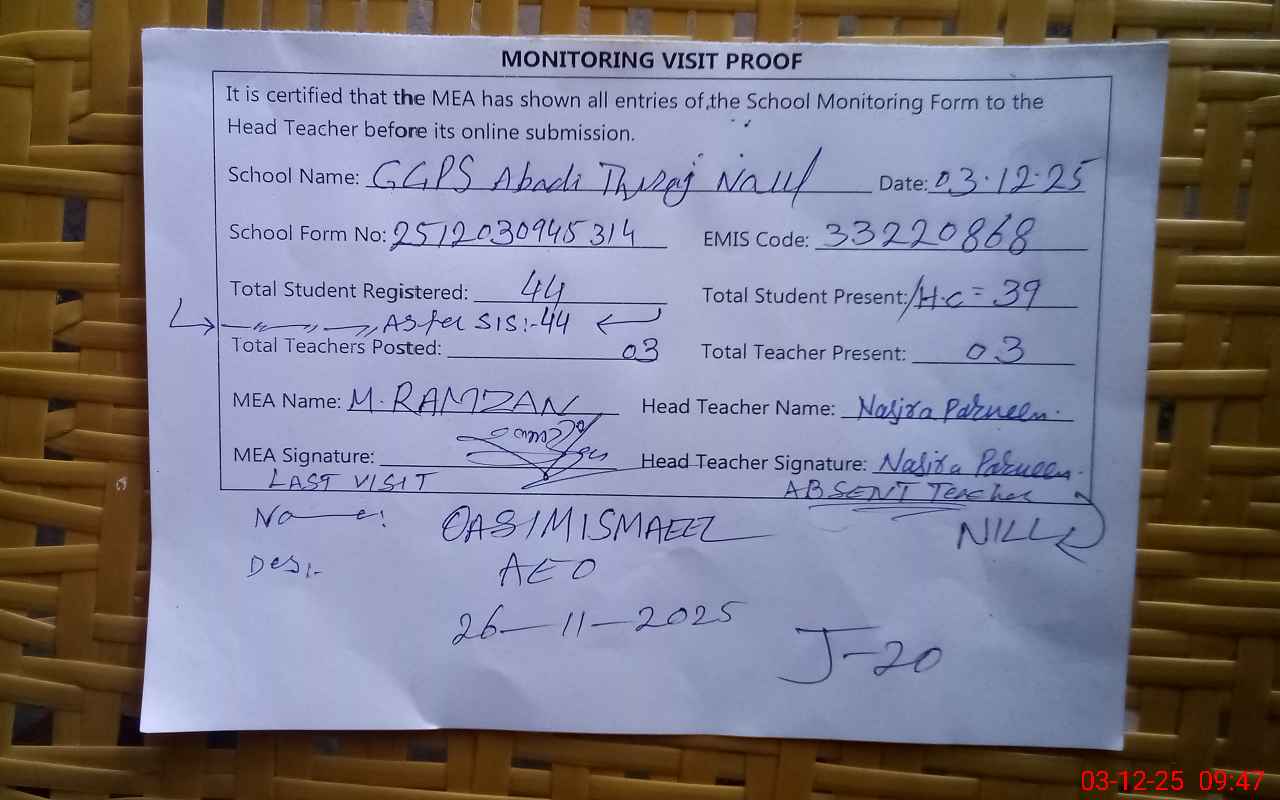 MONITORING VISIT PROOF
It is certified that the MEA has shown all entries of,the School Monitoring Form to the
Head Teacher before its online submission.
School Name: GGPS Abadi Nau Date: 03-12-25
School Form No: 2512030945314 EMIS Code: 33220868
Total Student Registered: 44 Total Student Present: /H.C = 39
As Per SIS:-44
Total Teachers Posted: 03 Total Teacher Present: 03
MEA Name: M. RAMZAN Head Teacher Name: Nasira Parveen.
MEA Signature: Head Teacher Signature: Nasira Parveen.
LAST VISIT ABSENT Teacher
Name: QASIM ISMAEEL NILL
Des:- AEO
26-11-2025
J-20
03-12-25 09:47